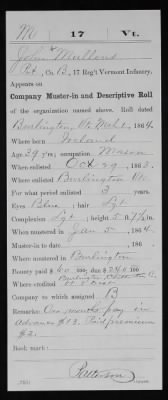 M 17 Vt.
John Mullens
Pvt., Co. B, 17 Reg't Vermont Infantry.
Appears on
Company Muster-in and Descriptive Roll
of the organization named above. Roll dated
Burlington Vt. Mch 1, 1864.
Where born Ireland
Age 39 y'rs; occupation Mason
When enlisted Oct 29, 1863.
Where enlisted Burlington Vt
For what period enlisted 3 years.
Eyes Blue; hair Lgt
Complexion Lgt; height 5 ft. 7½ in.
When mustered in Jan 5, 1864
Muster-in to date , 186 .
Where mustered in Burlington
Bounty paid $ 60 100; due $ 240 100
Where credited Burlington
Company to which assigned B
Remarks: One months pay in
advance $13. Paid premium
$2.
Book mark:
Patterson